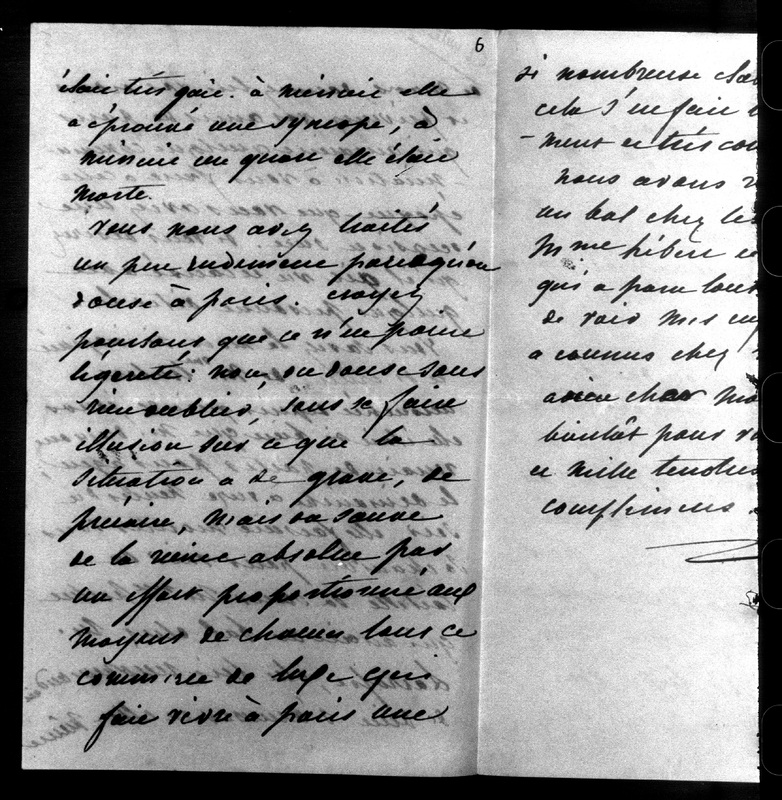 6
était très gaie. à minuit elle
a éprouvé une syncope, à
minuit un quart elle était
morte.
Vous nous avez traités
un peu rudement parcequ'on
danse à paris. croyez
pourtant que ce n'est point
légereté: non, on danse sans
rien oublier, sans se faire
illusion sur ce que la
situation a de grave, de
précaire, mais on sauve
de la ruine absolue par
un effort proportionné aux
moyens de chacun tout ce
commerce de luxe qui
fait vivre à paris une
si nombreuse
cela s'en fait
-ment et très
nous avons
un bal chez les
Mme hébert et
qui a paru
de voir mes
a connus chez
adieu cher
bientôt pour
et mille tendres
complimens